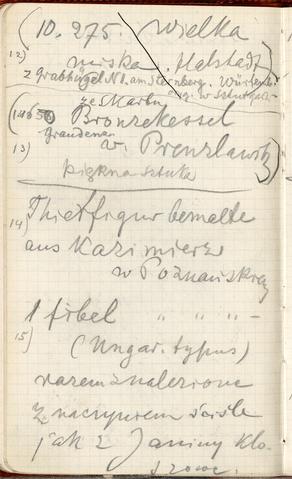 (10.275. Wielka
12)
miska. Halstadt
z Grabhügel N1. am Sternberg. Württ
ze Skarbu
Bronzekessel
Graudenz
13) w. Prenzlawitz
piękna sztuka
14) Thierfigur bemalte
aus Kazimierz
w Poznańskiem
1 fibel " " " -
15) (Ungar. typus)
razem znalezione
z naczyniem ściśle
jak z Janiny Klo-
szowe.